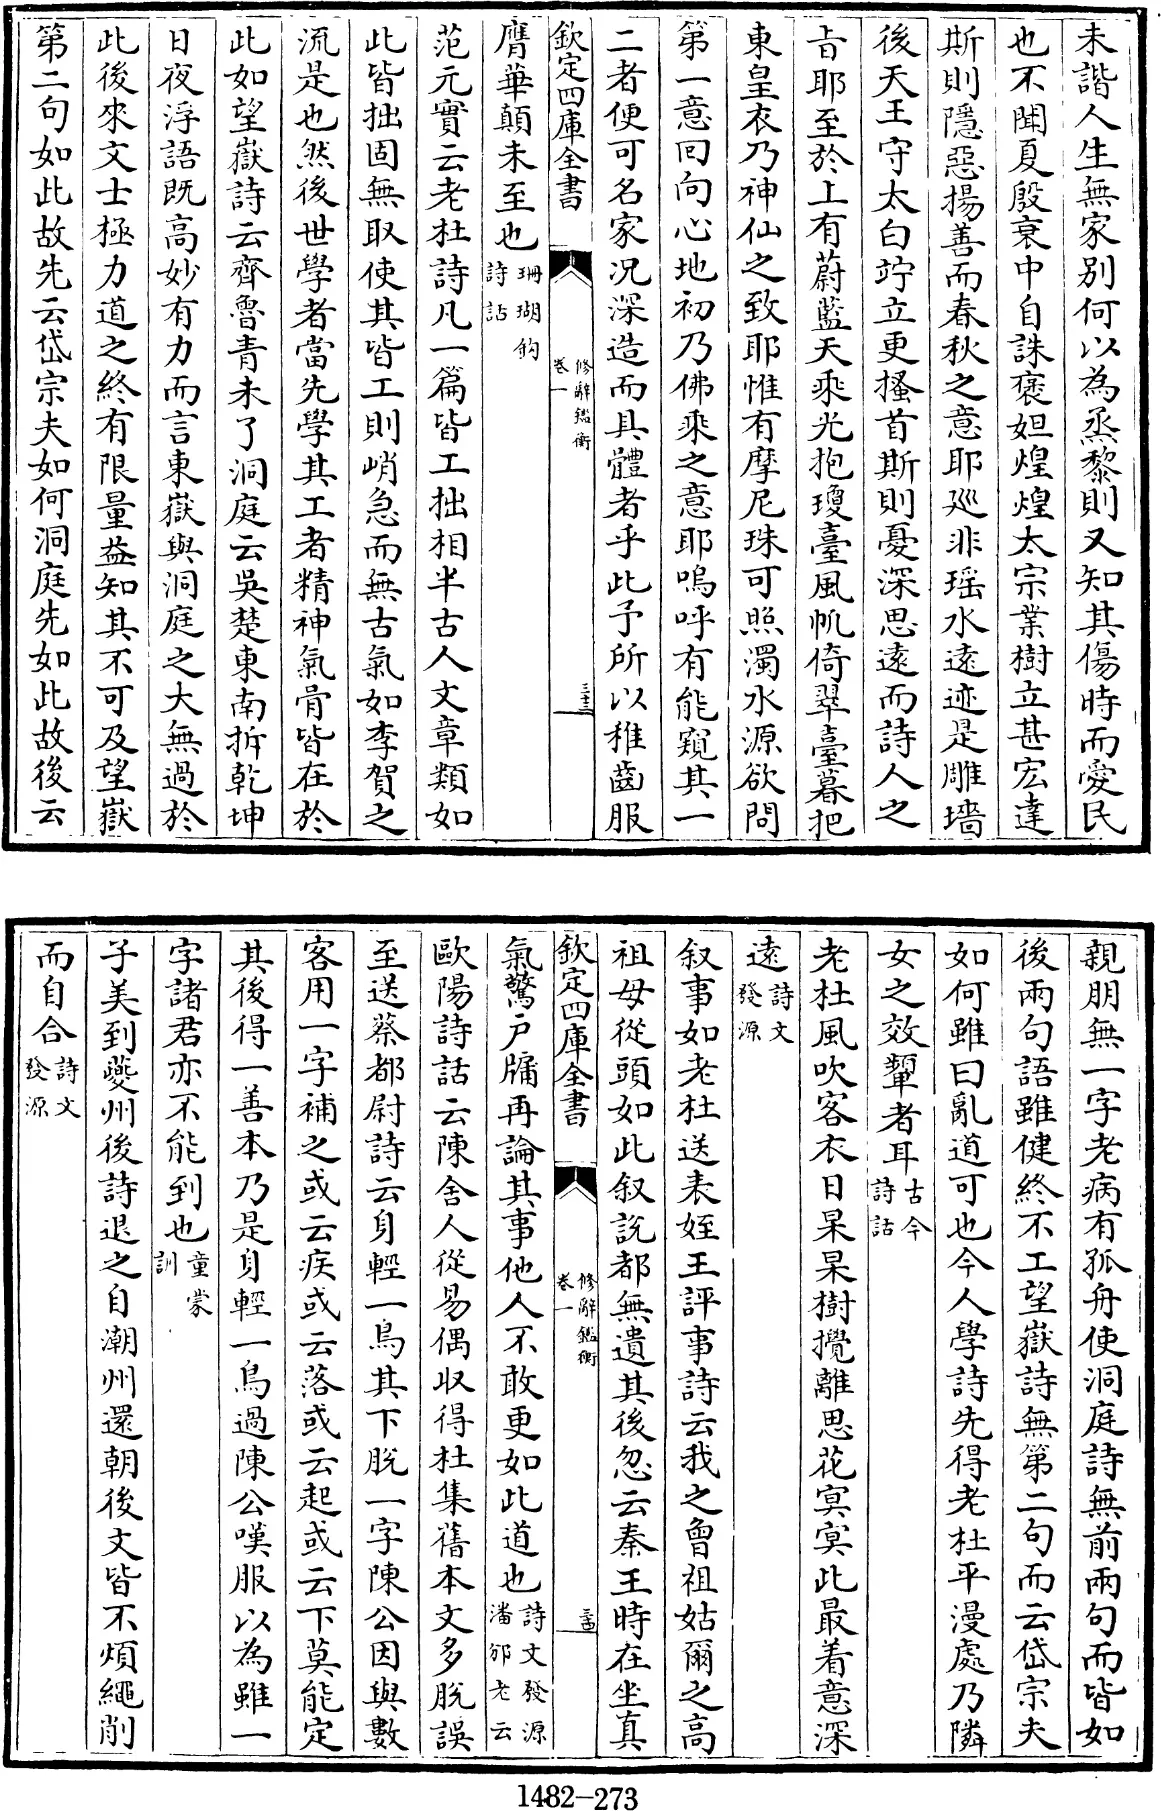 未諧人生無家别何以為烝黎則又知其傷時而愛民
也不聞夏殷衰中自誅褒妲煌煌太宗業樹立甚宏達
斯則隱惡揚善而春秋之意耶廵非瑶水遠迹是雕墻
後天王守太白竚立更搔首斯則憂深思遠而詩人之
㫖耶至於上有蔚藍天乘光抱瓊臺風帆倚翠臺暮把
東皇衣乃神仙之致耶惟有摩尼珠可照濁水源欲問
第一意囘向心地初乃佛乘之意耶嗚呼有能窺其一
二者便可名家况深造而具體者乎此予所以稚齒服
欽定四庫全書
修辭鑑衡
卷一
三十三
膺華顛未至也珊瑚鈎
詩話
范元實云老杜詩凡一篇皆工拙相半古人文章類如
此皆拙固無取使其皆工則峭急而無古氣如李賀之
流是也然後世學者當先學其工者精神氣骨皆在於
此如望嶽詩云齊魯青未了洞庭云吳楚東南拆乾坤
日夜浮語既高妙有力而言東嶽與洞庭之大無過於
此後來文士極力道之終有限量益知其不可及望嶽
第二句如此故先云岱宗夫如何洞庭先如此故後云
親朋無一字老病有孤舟使洞庭詩無前兩句而皆如
後兩句語雖健終不工望嶽詩無第二句而云岱宗夫
如何雖曰亂道可也今人學詩先得老杜平漫處乃隣
女之效顰者耳古今
詩話
老杜風吹客衣日杲杲樹攪離思花冥冥此最着意深
遠詩文
發源
叙事如老杜送表姪王評事詩云我之曾祖姑爾之高
祖母從頭如此叙說都無遺其後忽云秦王時在坐真
欽定四庫全書
修辭鑑衡
卷一
三十四
氣驚户牖再論其事他人不敢更如此道也詩文發源
潘邠老云
歐陽詩話云陳舍人從易偶收得杜集舊本文多脫誤
至送蔡都尉詩云身輕一鳥其下脫一字陳公因與數
客用一字補之或云疾或云落或云起或云下莫能定
其後得一善本乃是身輕一鳥過陳公嘆服以為雖一
字諸君亦不能到也童蒙
訓
子美到夔州後詩退之自潮州還朝後文皆不煩繩削
而自合詩文
發源
1482-273